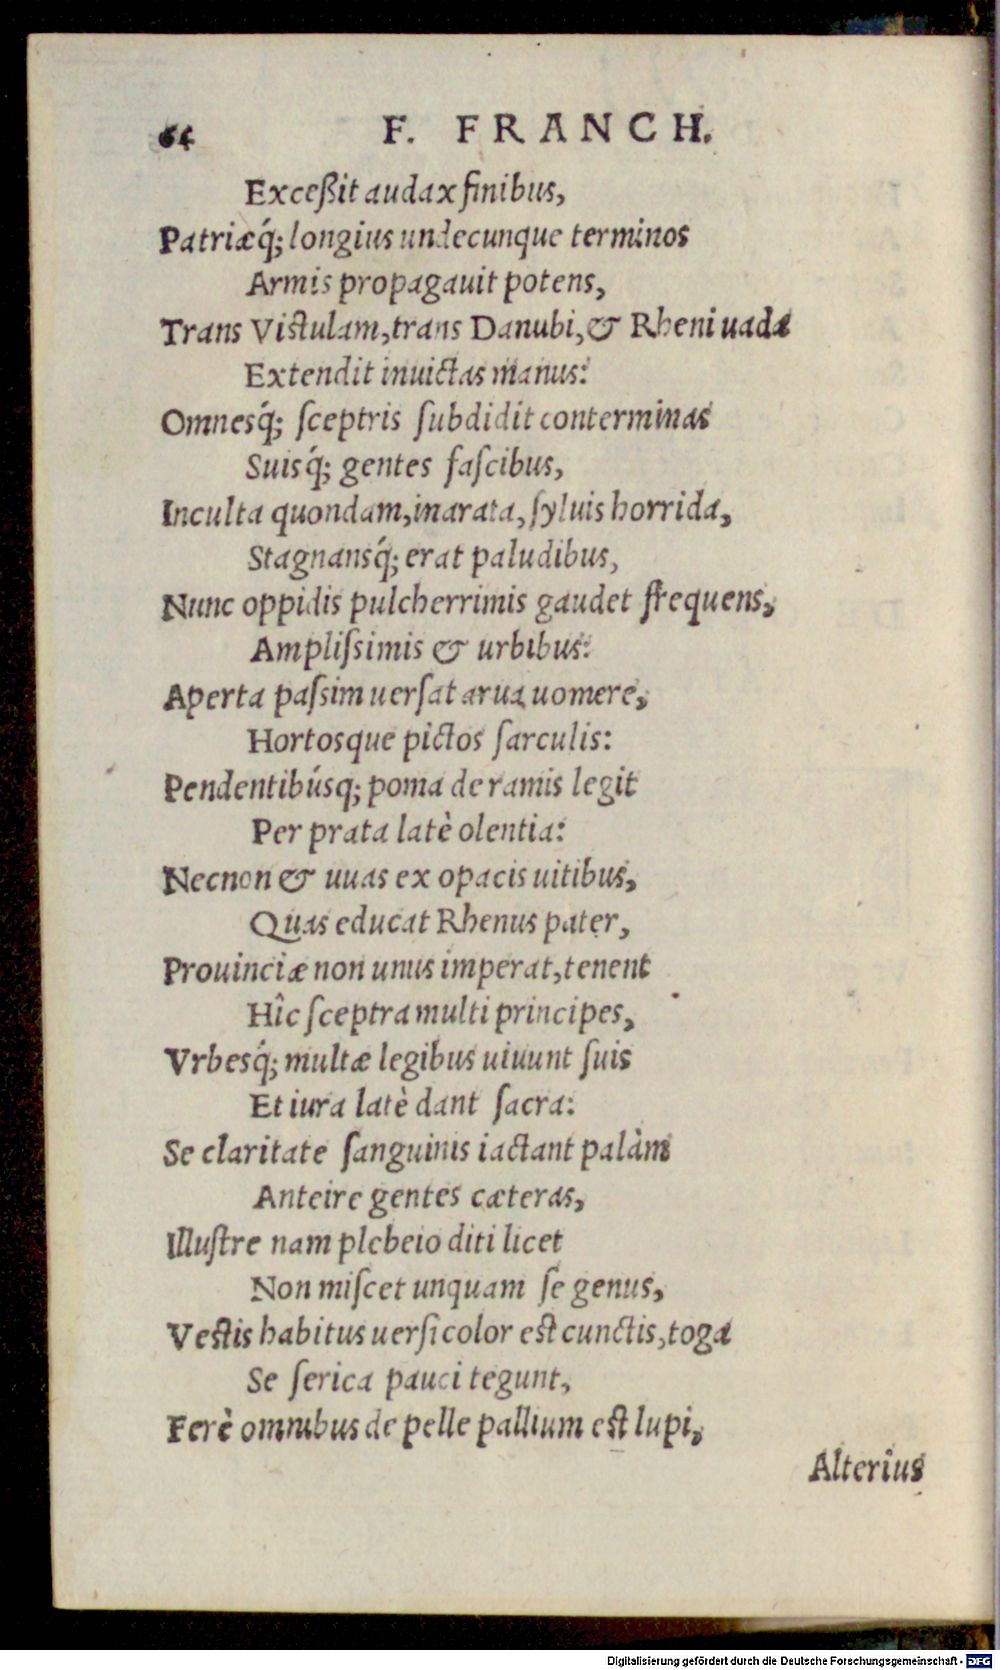 64 F. FRANCH.
Exceßit audax finibus,
Patriæq́; longius undecunque terminos
Armis propagauit potens,
Trans Vistulam, trans Danubi, & Rheni uada
Extendit inuictas manus:
Omnesq́; ſceptris ſubdidit conterminas
Suisq́; gentes faſcibus,
Inculta quondam, inarata, ſyluis horrida,
Stagnansq́; erat paludibus,
Nunc oppidis pulcherrimis gaudet frequens,
Ampliſsimis & urbibus:
Aperta paſsim uerſat arua uomere,
Hortosque pictos ſarculis:
Pendentibúsq; poma de ramis legit
Per prata latè olentia:
Necnon & uuas ex opacis uitibus,
Quas educat Rhenus pater,
Prouinciæ non unus imperat, tenent
Hîc ſceptra multi principes,
Vrbesq́; multæ legibus uiuunt ſuis
Et iura latè dant ſacra:
Se claritate ſanguinis iactant palàm
Anteire gentes cæteras,
Illuſtre nam plebeio diti licet
Non miſcet unquam ſe genus,
Vestis habitus uerſicolor est cunctis, toga
Se ſerica pauci tegunt,
Ferè omnibus de pelle pallium est lupi,
Alterius
Digitalisierung gefördert durch die Deutsche Forschungsgemeinschaft - DFG